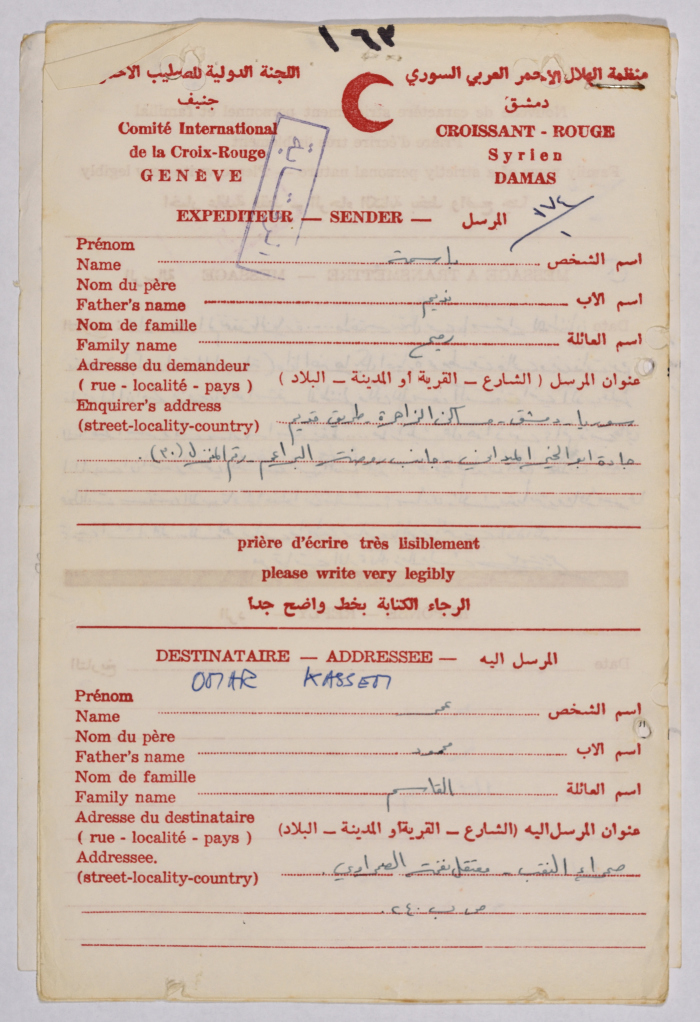 ١٦٣
منظمة الهلال الاحمر العربي السوري
دمشق
CROISSANT - ROUGE
Syrien
DAMAS
اللجنة الدولية للصليب الاحمر
جنيف
Comité International
de la Croix-Rouge
GENÈVE
١٧٤/١
EXPEDITEUR — SENDER — المرسل
Prénom
Name باسمة اسم الشخص
Nom du père
Father's name نديم اسم الاب
Nom de famille
Family name اسم العائلة
Adresse du demandeur
( rue - localité - pays ) عنوان المرسل ( الشارع – القرية أو المدينة – البلاد )
Enquirer's address
(street-locality-country) سوريا - دمشق - مساكن الزاهرة - طريق قديم
جادة ابو الخير الميداني - جانب روضة البراعم - رقم المنزل (٣٠) .
prière d'écrire très lisiblement
please write very legibly
الرجاء الكتابة بخط واضح جدا
DESTINATAIRE — ADDRESSEE — المرسل اليه
OMAR KASSEM
Prénom
Name عمر اسم الشخص
Nom du père
Father's name محمود اسم الاب
Nom de famille
Family name القاسم اسم العائلة
Adresse du destinataire
( rue - localité - pays ) عنوان المرسل اليه (الشارع – القرية أو المدينة – البلاد)
Addressee.
(street-locality-country) صحراء النقب - معتقل نفحة الصحراوي .
ص ب ٢٤٠